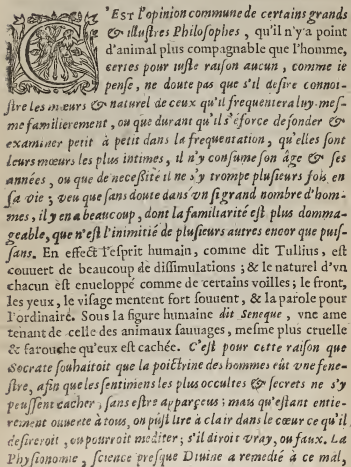 C'EST l'opinion commune de certains grands
& illustres Philosophes, qu'il n'y a point
d'animal plus compagnable que l'homme,
certes pour iuste raison aucun, comme ie
pense, ne doute pas que s'il desire connoi-
stre les mœurs & naturel de ceux qu'il frequentera luy-mes-
me familierement, ou que durant qu'il s'éforce de sonder &
examiner petit à petit dans la frequentation, qu'elles sont
leurs mœurs les plus intimes, il n'y consume son âge & ses
années, ou que de necessité il ne s'y trompe plusieurs fois en
sa vie ; veu que sans doute dans vn si grand nombre d'hom-
mes, il y en a beaucoup, dont la familiarité est plus domma-
geable, que n'est l'inimitié de plusieurs autres encor que puis-
sans. En effect l'esprit humain, comme dit Tullius, est
couuert de beaucoup de dissimulations ; & le naturel d'vn
chacun est enueloppé comme de certains voilles ; le front,
les yeux, le visage mentent fort souuent, & la parole pour
l'ordinaire. Sous la figure humaine dit Seneque, vne ame
tenant de celle des animaux sauuages, mesme plus cruelle
& farouche qu'eux est cachée. C'est pour cette raison que
Socrate souhaitoit que la poictrine des hommes eût vne fene-
stre, afin que les sentimens les plus occultes & secrets ne s'y
peussent cacher, sans estre apparçeus ; mais qu'estant entie-
rement ouuerte à tous, on pûst lire à clair dans le cœur ce qu'il
desireroit, ou pourroit mediter ; s'il diroit vray, ou faux. La
Physionomie, science presque Diuine a remedié à ce mal,